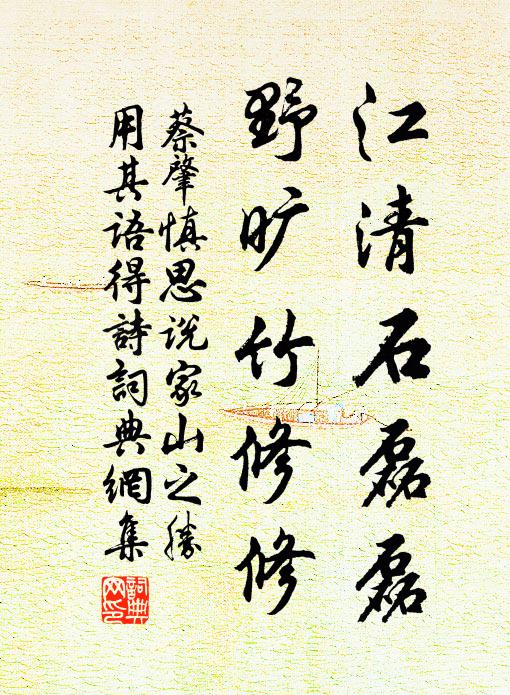 江清石磊磊
野旷竹修修
蔡肇慎思说家山之勝
用其语得詩詞典網集
詞典网印